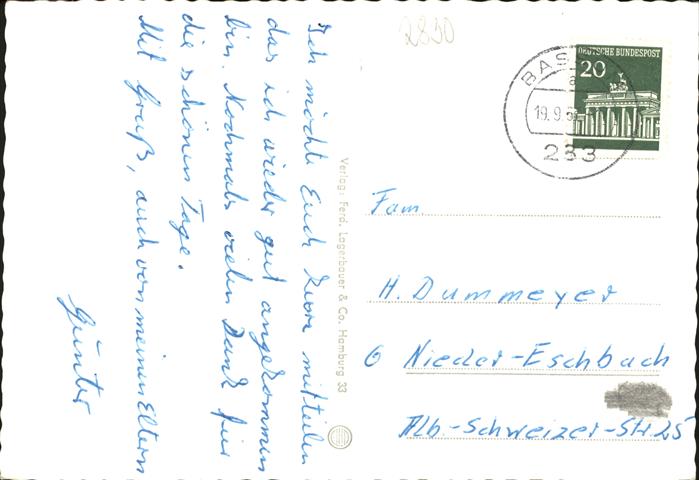 2830
Ich möchte Euch kurz mitteilen
das ich wieder gut angekommen
bin. Nochmals vielen Dank für
die schönen Tage.
Mit Gruß, auch von meinen Eltern
Günter
Verlag: Ferd. Lagerbauer & Co. Hamburg 33
DEUTSCHE BUNDESPOST
20
19.9.6
283
Fam.
H. Dummeyer
6 Nieder-Eschbach
Alb-Schweizer-Str. 25